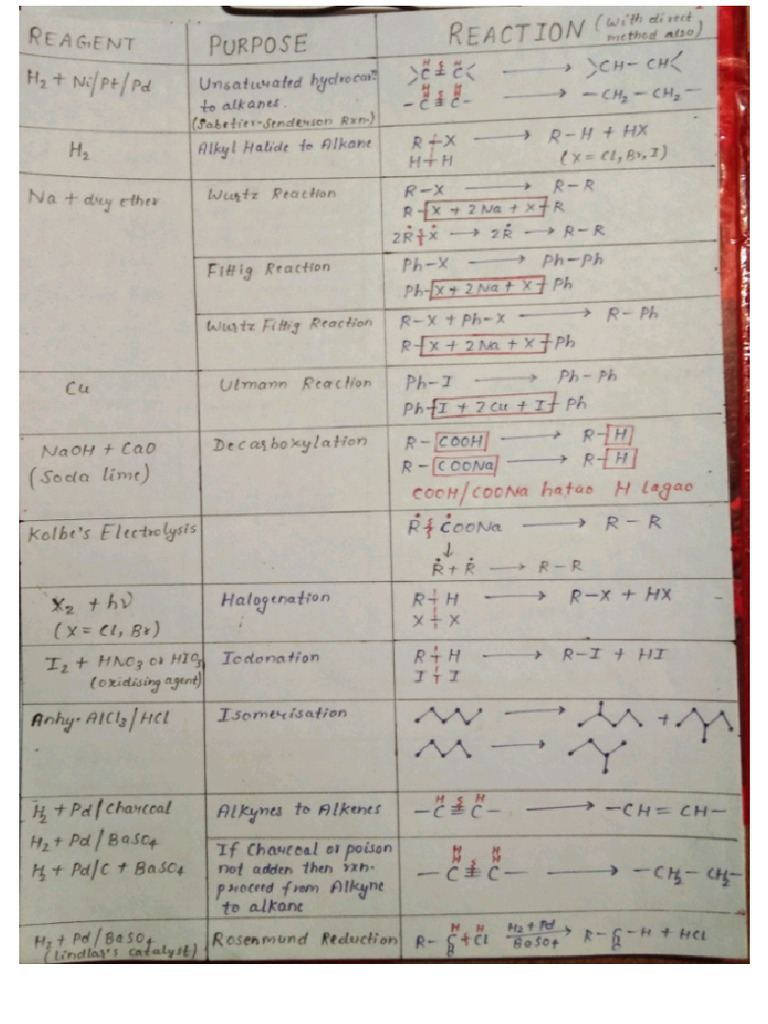 REAGENT
PURPOSE
REACTION (with direct method also)
H₂ + Ni/Pt/Pd
Unsaturated hydrocar
to alkanes.
(Sabetier-Senderson Rxn)
>C = C< → >CH - CH<
- C ≡ C - → - CH₂ - CH₂ -
H₂
Alkyl Halide to Alkane
R - X → R - H + HX
H - H (X = Cl, Br, I)
Na + dry ether
Wurtz Reaction
R - X → R - R
R - X + 2 Na + X - R
2Ṙ Ẋ → 2Ṙ → R - R
Fittig Reaction
Ph - X → Ph - Ph
Ph - X + 2 Na + X - Ph
Wurtz Fittig Reaction
R - X + Ph - X → R - Ph
R - X + 2 Na + X - Ph
Cu
Ulmann Reaction
Ph - I → Ph - Ph
Ph - I + 2 Cu + I - Ph
NaOH + CaO
(Soda lime)
Decarboxylation
R - COOH → R - H
R - COONa → R - H
COOH/COONa hatao H lagao
Kolbe's Electrolysis
Ṙ ĊOONa → R - R
↓
Ṙ + Ṙ → R - R
X₂ + hν
(X = Cl, Br)
Halogenation
R - H → R - X + HX
X - X
I₂ + HNO₃ or HIO₃
(oxidising agent)
Iodonation
R - H → R - I + HI
I - I
Anhy. AlCl₃/HCl
Isomerisation
→ +
→
H₂ + Pd/Charcoal
H₂ + Pd/BaSO₄
H₂ + Pd/C + BaSO₄
Alkynes to Alkenes
H H
- C ≡ C - → - CH = CH -
If Charcoal or poison
not adden then rxn-
proceed from Alkyne
to alkane
H H
H H
- C ≡ C - → - CH₂ - CH₂ -
H₂ + Pd/BaSO₄
(Lindlar's catalyst)
Rosenmund Reduction
H H
R - C + Cl H₂ + Pd / BaSO₄ → R - C - H + HCl
O O